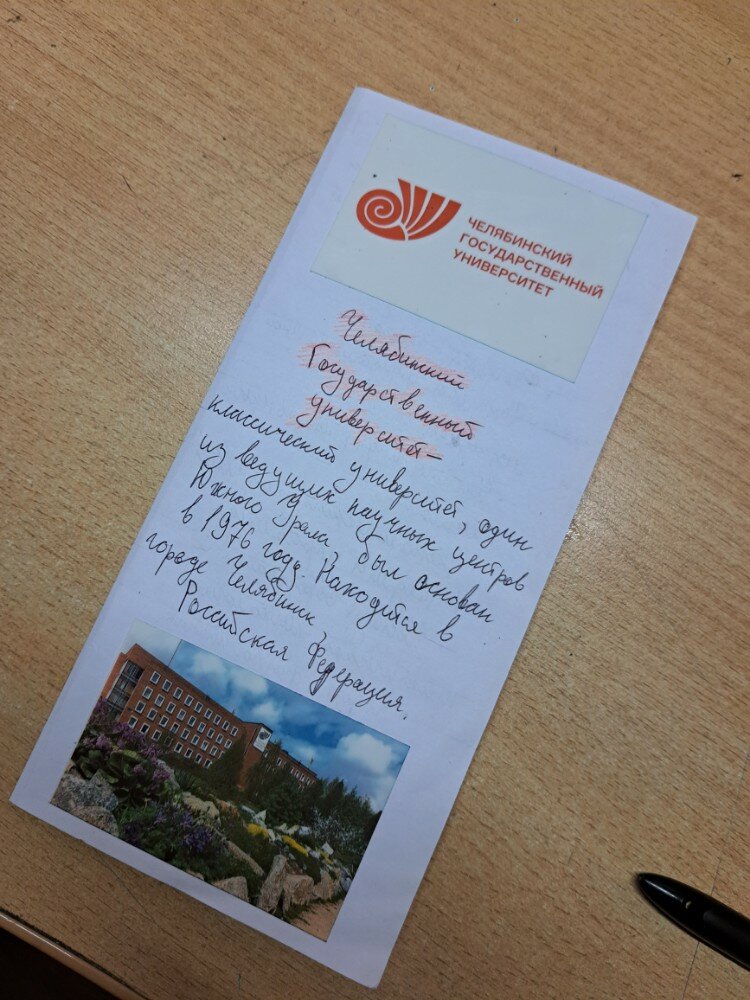 ЧЕЛЯБИНСКИЙ
ГОСУДАРСТВЕННЫЙ
УНИВЕРСИТЕТ
Челябинский
Государственный
университет–
классический университет, один
из ведущих научных центров
Южного Урала, был основан
в 1976 году. Находится в
городе Челябинск,
Российская Федерация.